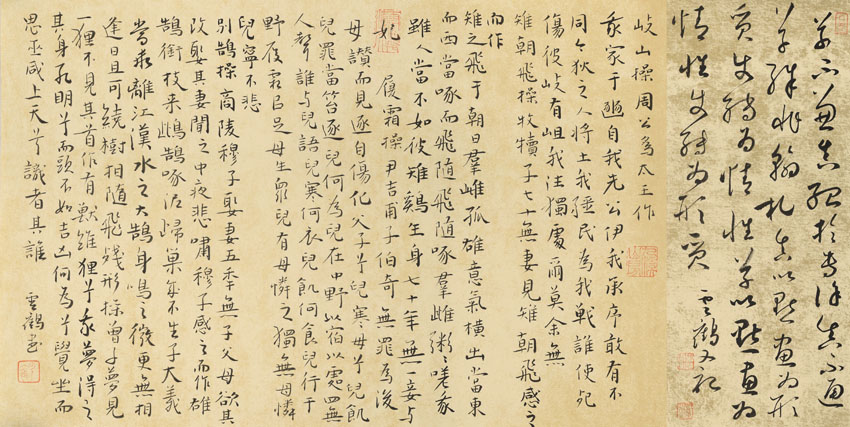 草不兼真殆於專謹真不通
草殊非翰札真以點畫為形
質使轉為情性草以點畫為
情性使轉為形質 雲鶴又記
岐山操周公為太王作
我家于豳自我先公伊我承序敢有不
同今狄之人將土我疆民為我戰誰使死
傷彼岐有岨我往獨處爾莫余無
雉朝飛操牧犢子七十無妻見雉朝飛感之
而作
雉之飛于朝日群雌孤雄意氣橫出當東
而西當啄而飛隨飛隨啄群雌粥粥嗟我
雖人當不如彼雉雞生身七十年無一妾與
妃 履霜操尹吉甫子伯奇無罪為後
母譖而見逐自傷作父兮兒寒母兮兒飢
兒罪當笞逐兒何為兒在中野以宿以處四無
人聲誰與兒語兒寒何衣兒飢何食兒行于
野履霜以足母生眾兒有母憐之獨無母憐
兒寧不悲
別鵠操商陵穆子娶妻五年無子父母欲其
改娶其妻聞之中夜悲嘯穆子感之而作雄
鵠銜枝來雌鵠啄泥歸巢成不生子大義
當乖離江漢水之大鵠身鳥之微更無相
逢日且可繞樹相隨飛殘形操曾子夢見
一狸不見其首作有獸維狸兮我夢得之
其身孔明兮而頭不知吉凶何為兮覺坐而
思巫咸上天兮識者其誰 雲鶴書